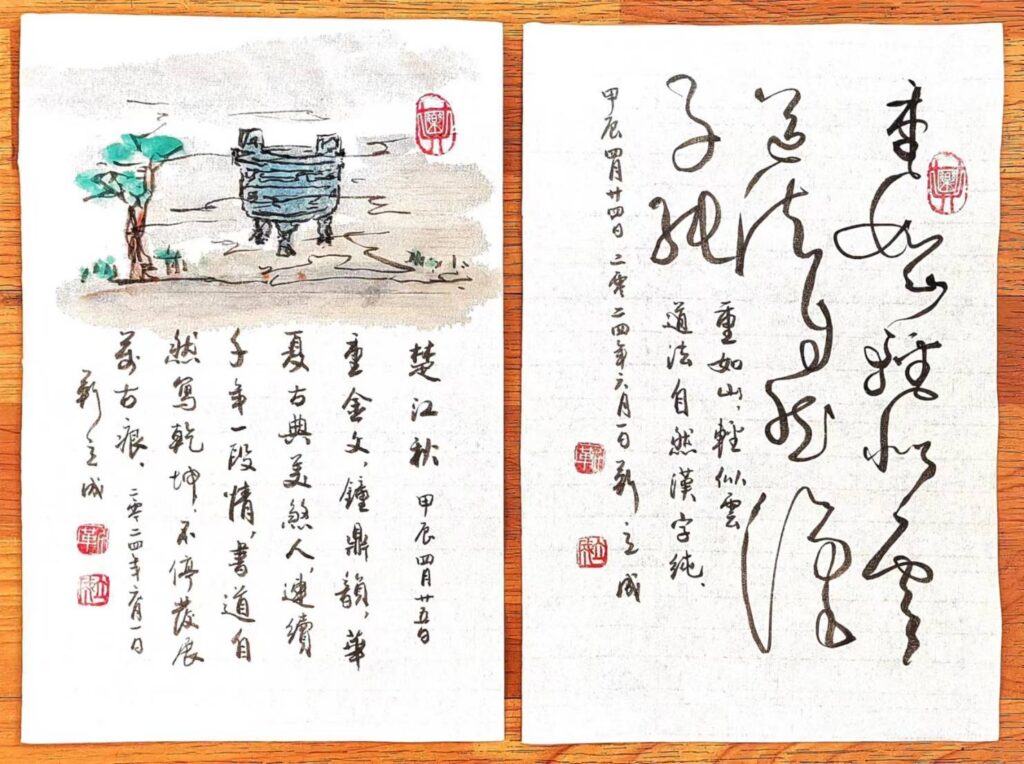 楚江秋 甲辰四月廿五日
重金文，鐘鼎韻，華
夏古典美煞人，連續
千年一段情，書道自
然寫乾坤，不停發展
萬古痕、二零二四年六月一日
靳立成
重如山輕似雲
道法自然漢
字純
重如山，輕似雲
道法自然漢字純、
甲辰四月廿四日 二零二四年六月一日 靳立成